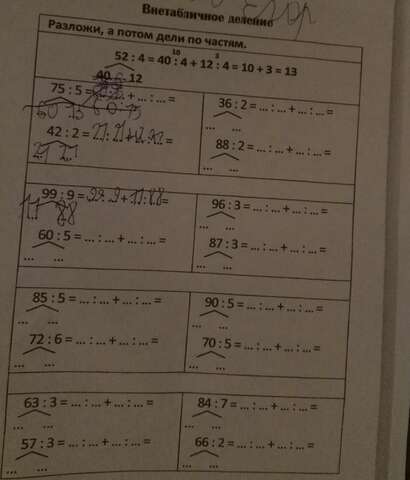 Внетабличное деление
Разложи, а потом дели по частям.
10 3
52 : 4 = 40 : 4 + 12 : 4 = 10 + 3 = 13
40 12
75 : 5 = + ... : ... =
36 : 2 = ... : ... + ... : ... =
... ...
42 : 2 =
88 : 2 = ... : ... + ... : ... =
... ...
99 : 9 =
11 88
96 : 3 = ... : ... + ... : ... =
... ...
60 : 5 = ... : ... + ... : ... =
... ...
87 : 3 = ... : ... + ... : ... =
... ...
85 : 5 = ... : ... + ... : ... =
... ...
90 : 5 = ... : ... + ... : ... =
... ...
72 : 6 = ... : ... + ... : ... =
... ...
70 : 5 = ... : ... + ... : ... =
... ...
63 : 3 = ... : ... + ... : ... =
... ...
84 : 7 = ... : ... + ... : ... =
... ...
57 : 3 = ... : ... + ... : ... =
... ...
66 : 2 = ... : ... + ... : ... =
... ...